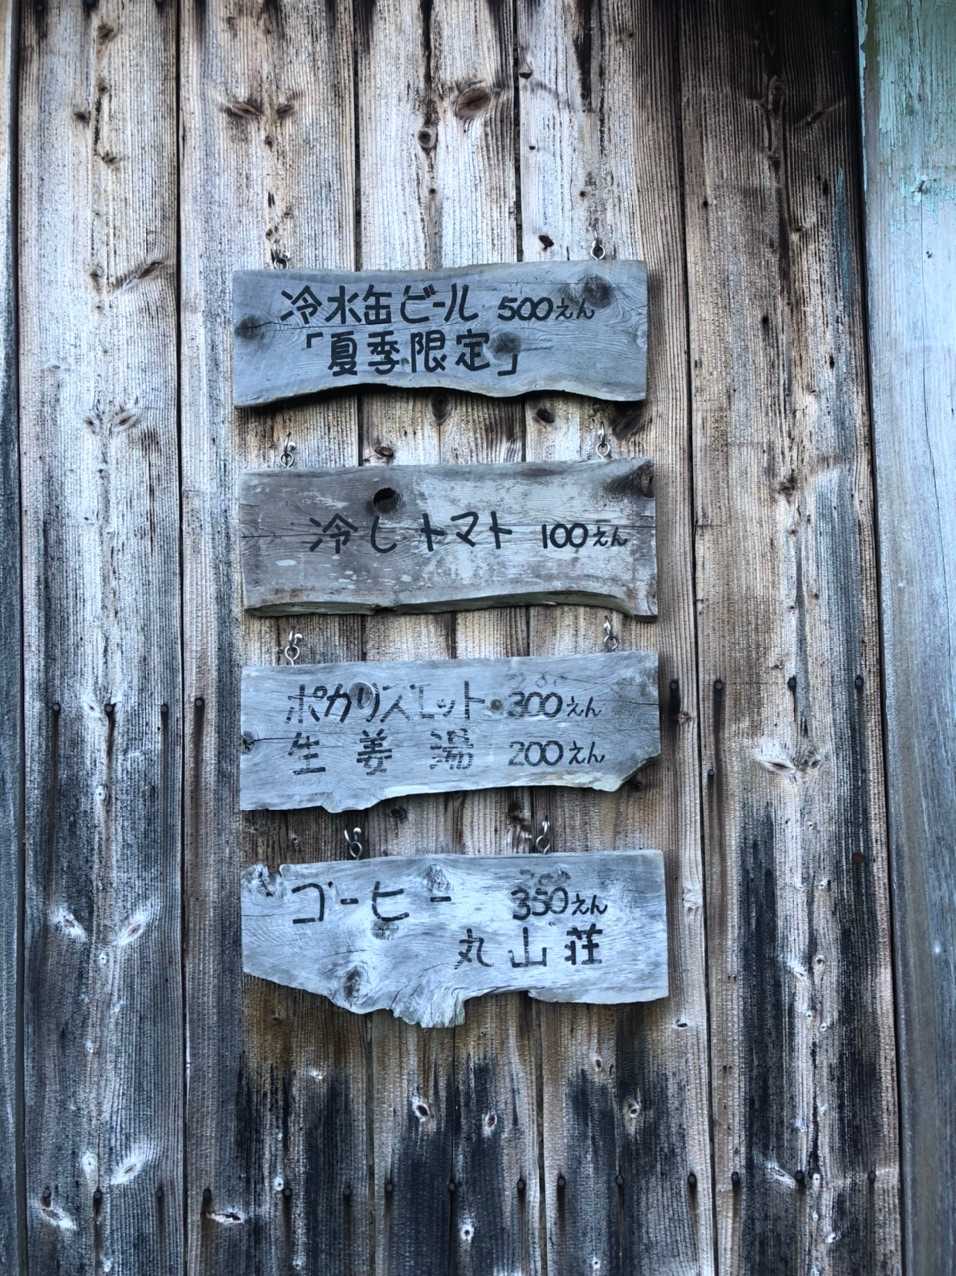 冷水缶ビール 500えん
「夏季限定」
冷しトマト 100えん
ポカリスエット 300えん
生姜湯 200えん
コーヒー 350えん
丸山荘